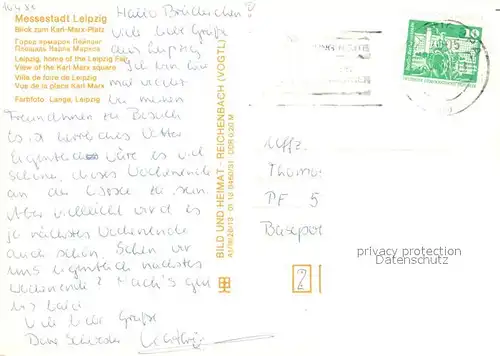 Messestadt Leipzig
Blick zum Karl-Marx-Platz
Город ярмарок Лейпциг
Площадь Карла Маркса
Leipzig, home of the Leipzig Fair
View of the Karl Marx square
Ville de foire de Leipzig
Vue de la place Karl Marx
Farbfoto: Lange, Leipzig
Hallo Brüderchen!
Viele liebe Grüße
aus Leipzig
Ich bin hier
mal wieder
bei meinen
Freundinnen zu Besuch
Es ist herrliches Wetter
Eigentlich wäre es viel
schöner, dieses Wochenende
an der Ostsee zu sein.
Aber vielleicht wird es
ja nächstes Wochenende
auch schön. Sehen wir
uns eigentlich nächstes
Wochenende? Mach's gut
Viele liebe Grüße
Deine Schwester
BILD UND HEIMAT · REICHENBACH (VOGTL)
01 10 0460/31 DDR 0,20 M
10
Uffz.
Thomas
PF 5
privacy protection
Datenschutz
2